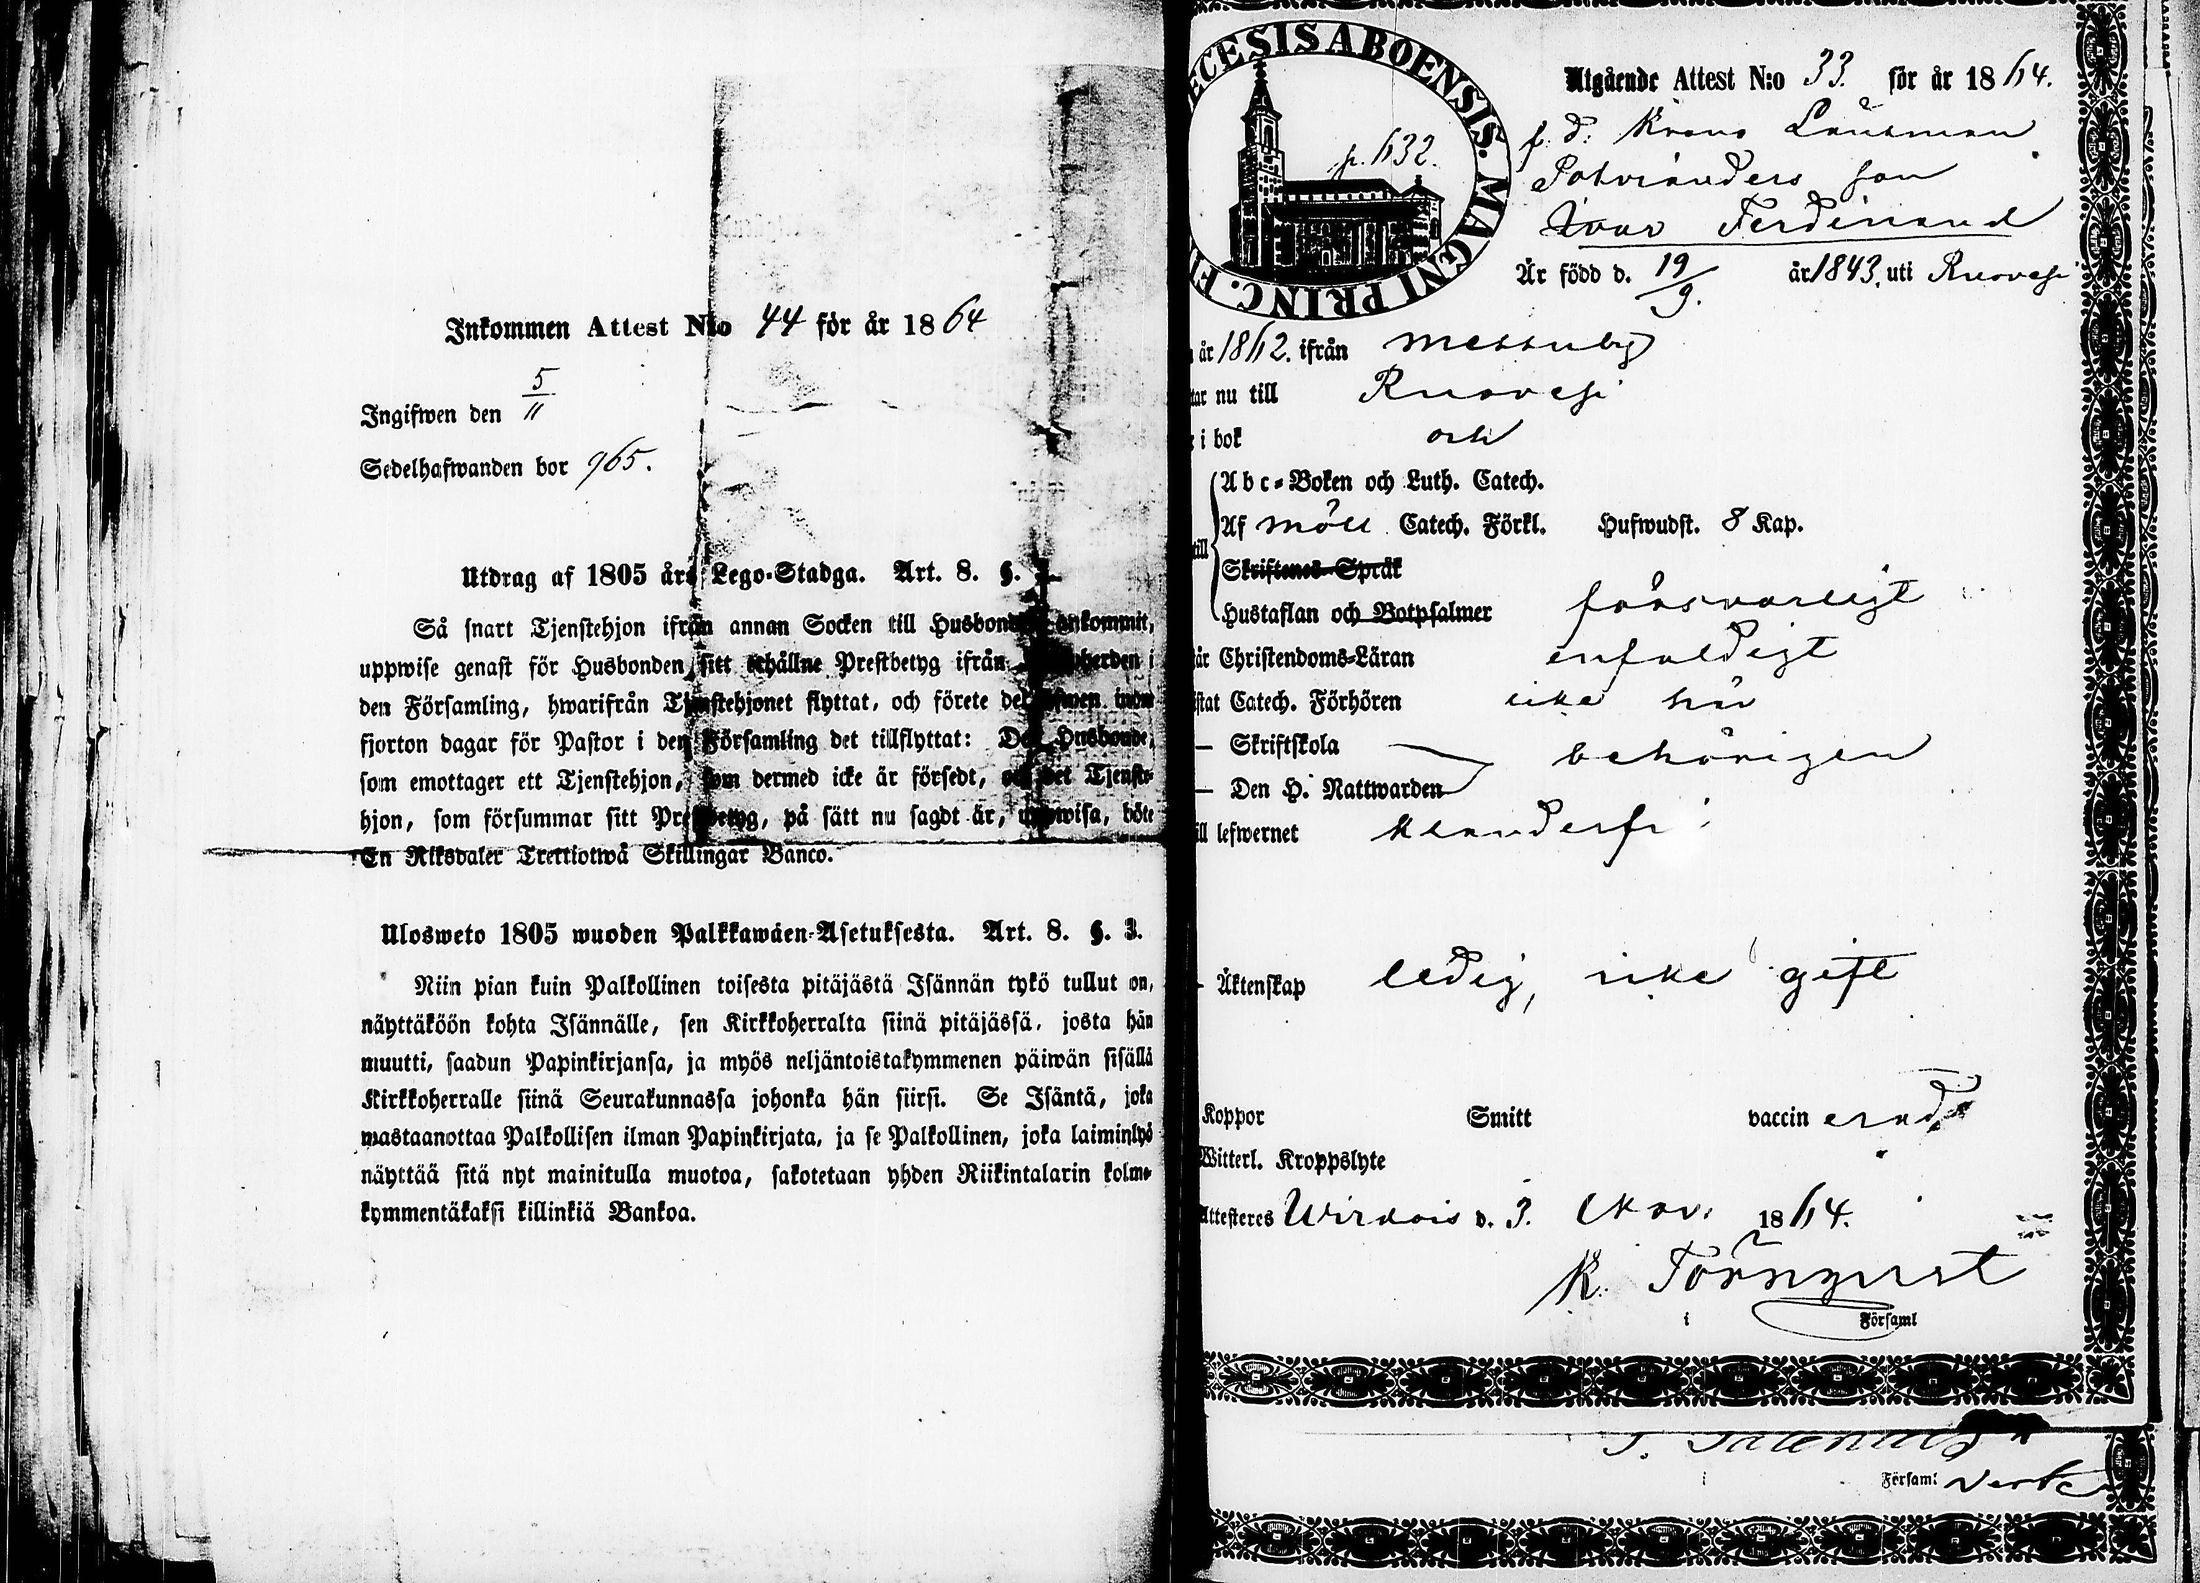 Inkommen Attest N:o 44 för år 1864
Ingifwen den 5/11
Sedelhafwanden bor 965.
Utdrag af 1805 års Lego-Stadga. Art. 8. §.
Så snart Tjenstehjon ifrån annan Socken till Husbonde ankommit,
uppwise genast för Husbonden sitt erhållne Prestbetyg ifrån Kyrkoherden i
den Församling, hwarifrån Tjenstehjonet flyttat, och förete det äfwen inom
fjorton dagar för Pastor i den Församling det tillflyttat: Den Husbonde,
som emottager ett Tjenstehjon, som dermed icke är försedt, och det Tjenste-
hjon, som försummar sitt Prestbetyg, på sätt nu sagdt är, uppwisa, böte
En Riksdaler Trettiotwå Skillingar Banco.
Ulosweto 1805 wuoden Palkkawäen-Asetuksesta. Art. 8. §. 3.
Niin pian kuin Palkollinen toisesta pitäjästä Isännän tykö tullut on,
näyttäköön kohta Isännälle, sen Kirkkoherralta siinä pitäjässä, josta hän
muutti, saadun Papinkirjansa, ja myös neljäntoistakymmenen päiwän sisällä
Kirkkoherralle siinä Seurakunnassa johonka hän siirsi. Se Isäntä, joka
wastaanottaa Palkollisen ilman Papinkirjata, ja se Palkollinen, joka laiminlyö
näyttää sitä nyt mainitulla muotoa, sakotetaan yhden Riikintalarin kolme-
kymmentäkaksi killinkiä Bankoa.
ECESIS ABOENSIS. MAGNI PRINC. FI
p. 632.
Utgående Attest N:o 33. för år 1864.
f. d. Krono Länsman
Pohvianders son
Ivar Ferdinand
Är född d. 19/9. år 1843. uti Ruovesi
år 1862. ifrån Messuby
tar nu till Ruovesi
i bok och
Abc-Boken och Luth. Catech.
Af Möll Catech. Förkl. Hufwudst. 8 Kap.
till
Skriftenes Språk
Hustaflan och Botpsalmer försvarligt
år Christendoms-Läran enfaldigt
istat Catech. Förhören icke här
— Skriftskola behörigen
— Den H. Nattwarden
ll lefwernet klanderfri
- Äktenskap ledig, icke gift
Koppor Smitt vaccinerad
Witterl. Kroppslyte
Attesteres Wirdois d. 3. Nov. 1864.
K. Törnqvist
i Församl
Församl